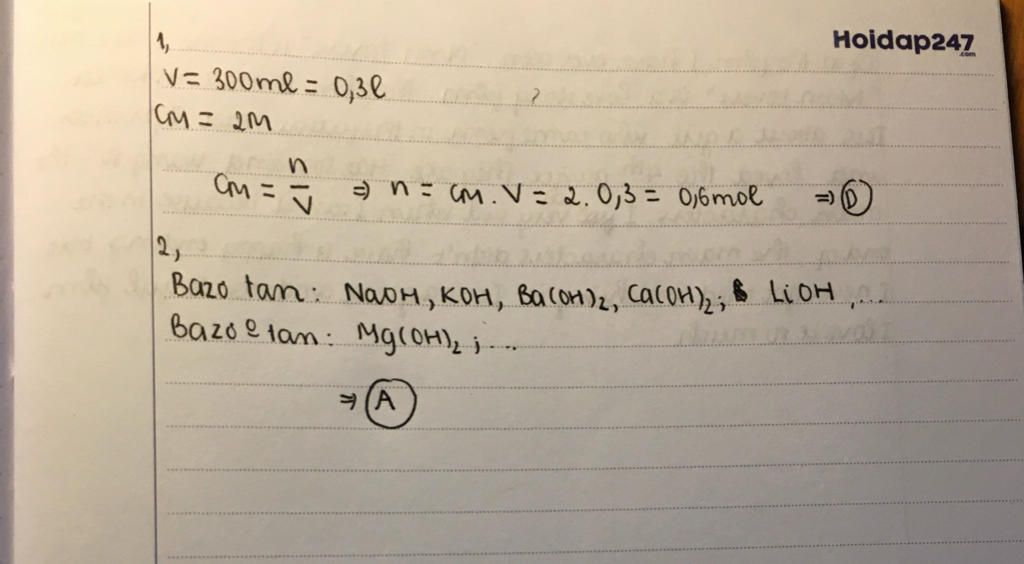 Hoidap247
.com
1,
V = 300ml = 0,3l
CM = 2M
CM = n/V ⇒ n = CM . V = 2 . 0,3 = 0,6mol ⇒ D
2,
Bazo tan: NaOH, KOH, Ba(OH)2, Ca(OH)2; LiOH,...
Bazo tan: Mg(OH)2;...
⇒ A